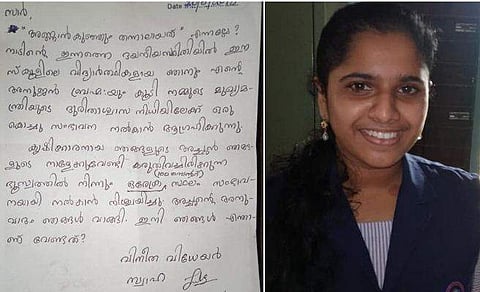 Date
സാർ,
"അണ്ണാൻകുഞ്ഞും തന്നാലായത്" എന്നല്ലേ?
നാടിന്റെ ഇന്നത്തെ ദയനീയസ്ഥിതിയിൽ ഈ
സ്കൂളിലെ വിദ്യാർത്ഥികളായ ഞാനും എന്റെ
അനുജൻ ബ്രഹ്മയും കൂടി നമ്മുടെ മുഖ്യമ
ന്ത്രിയുടെ ദുരിതാശ്വാസ നിധിയിലേക്ക് ഒരു
കൊച്ചു സംഭാവന നൽകാൻ ആഗ്രഹിക്കുന്നു.
കൃഷിക്കാരനായ ഞങ്ങളുടെ അച്ഛൻ ഞങ്ങ
ളുടെ നാളേക്കുവേണ്ടി കരുതിവച്ചിരിക്കുന്ന
ഭൂസ്വത്തിൽ നിന്നും ഒരേക്കർ സ്ഥലം സംഭാവ
നയായി നൽകാൻ നിശ്ചയിച്ചു. അച്ഛന്റെ അനു
വാദം ഞങ്ങൾ വാങ്ങി. ഇനി ഞങ്ങൾ എന്താ
ണ് വേണ്ടത്?
വിനീത വിധേയർ
സ്വാഹ